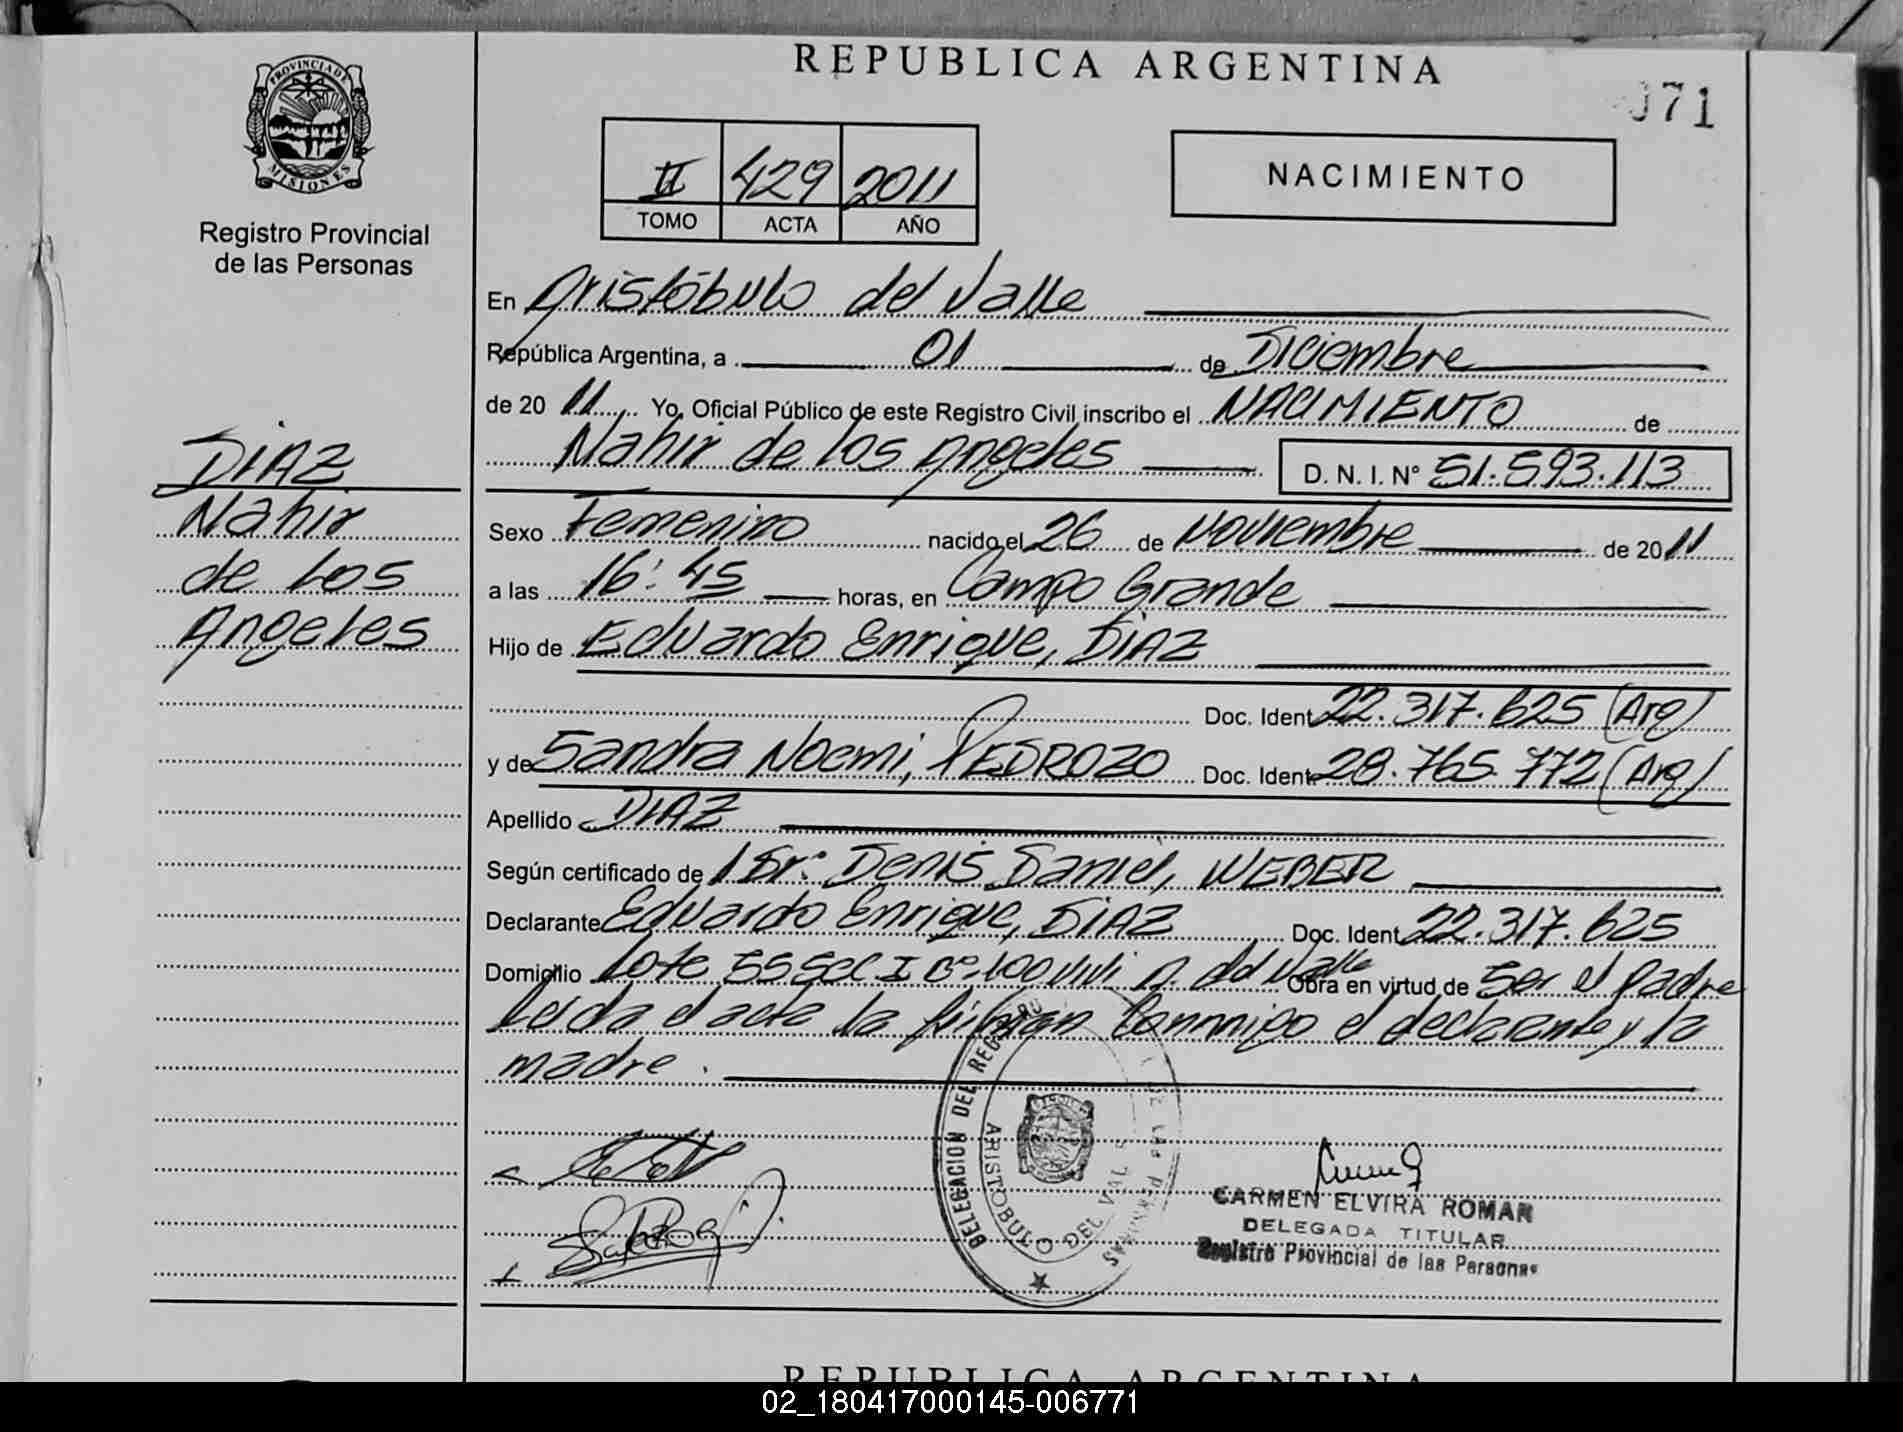 REPUBLICA ARGENTINA
071
PROVINCIA DE MISIONES
Registro Provincial
de las Personas
II 429 2011
TOMO ACTA AÑO
NACIMIENTO
En Aristóbulo del Valle
República Argentina, a 01 de Diciembre
de 2011 Yo, Oficial Público de este Registro Civil inscribo el NACIMIENTO de
Nahir de los Angeles D. N. I. Nº 51.593.113
DIAZ
Nahir
de Los
Angeles
Sexo Femenino nacido el 26 de Noviembre de 2011
a las 16:45 horas, en Campo Grande
Hijo de Eduardo Enrique, DIAZ
Doc. Ident. 22.317.625 (Arg)
y de Sandra Noemi, PEDROZO Doc. Ident. 28.765.772 (Arg)
Apellido DIAZ
Según certificado del Dr. Denis Daniel, WEBER
Declarante Eduardo Enrique, DIAZ Doc. Ident. 22.317.625
Domicilio Lote 55 Secc I Bº 100 Vivi A. del Valle Obra en virtud de Ser el padre
Leida el acta la firman Conmigo el declarante y la
madre.
DELEGACION DEL REGISTRO DE LAS PERSONAS
ARISTOBULO DEL VALLE
CARMEN ELVIRA ROMAN
DELEGADA TITULAR
Registro Provincial de las Personas
REPUBLICA ARGENTINA
02_180417000145-006771